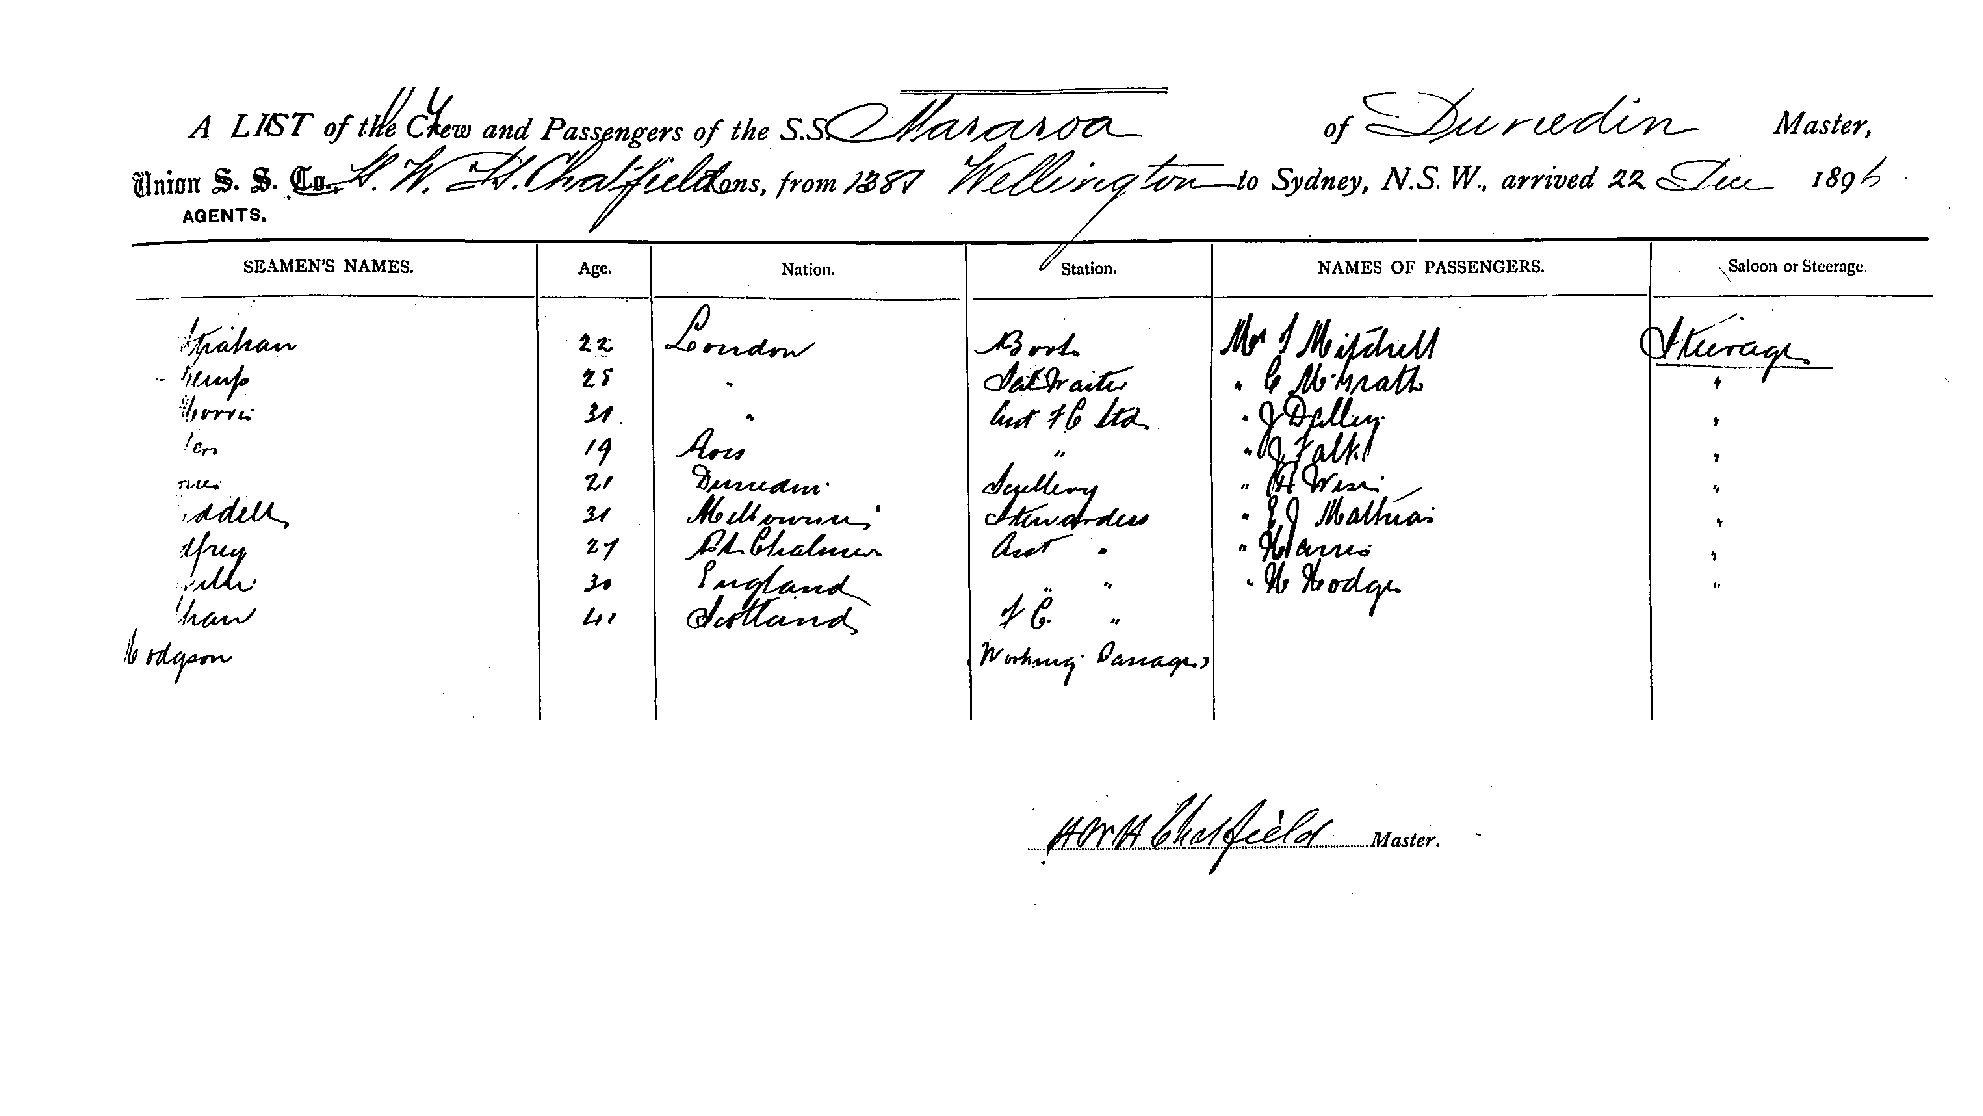 A LIST of the Crew and Passengers of the S.S. Mararoa of Dunedin Master,
Union S. S. Co., H. W. H. Chatfield tons, from 1381 Wellington to Sydney, N.S.W., arrived 22 Dec 1896
AGENTS.
SEAMEN'S NAMES. Age. Nation. Station. NAMES OF PASSENGERS. Saloon or Steerage.
Strahan 22 London Boots Mr Mitchell Steerage
Kemp 25 " Sal Waiter " C McGrath "
Morris 31 " Asst F C Std " J Dalley "
19 " " J Falk "
21 Dunedin Scullery " "
ddell 31 Melbourne Stewardess " E J Mathias "
27 Pt Chalmers Asst " " Harris "
30 England " " " H Hodge "
41 Scotland F C "
Hodgson Working Passage
HWH Chatfield Master.